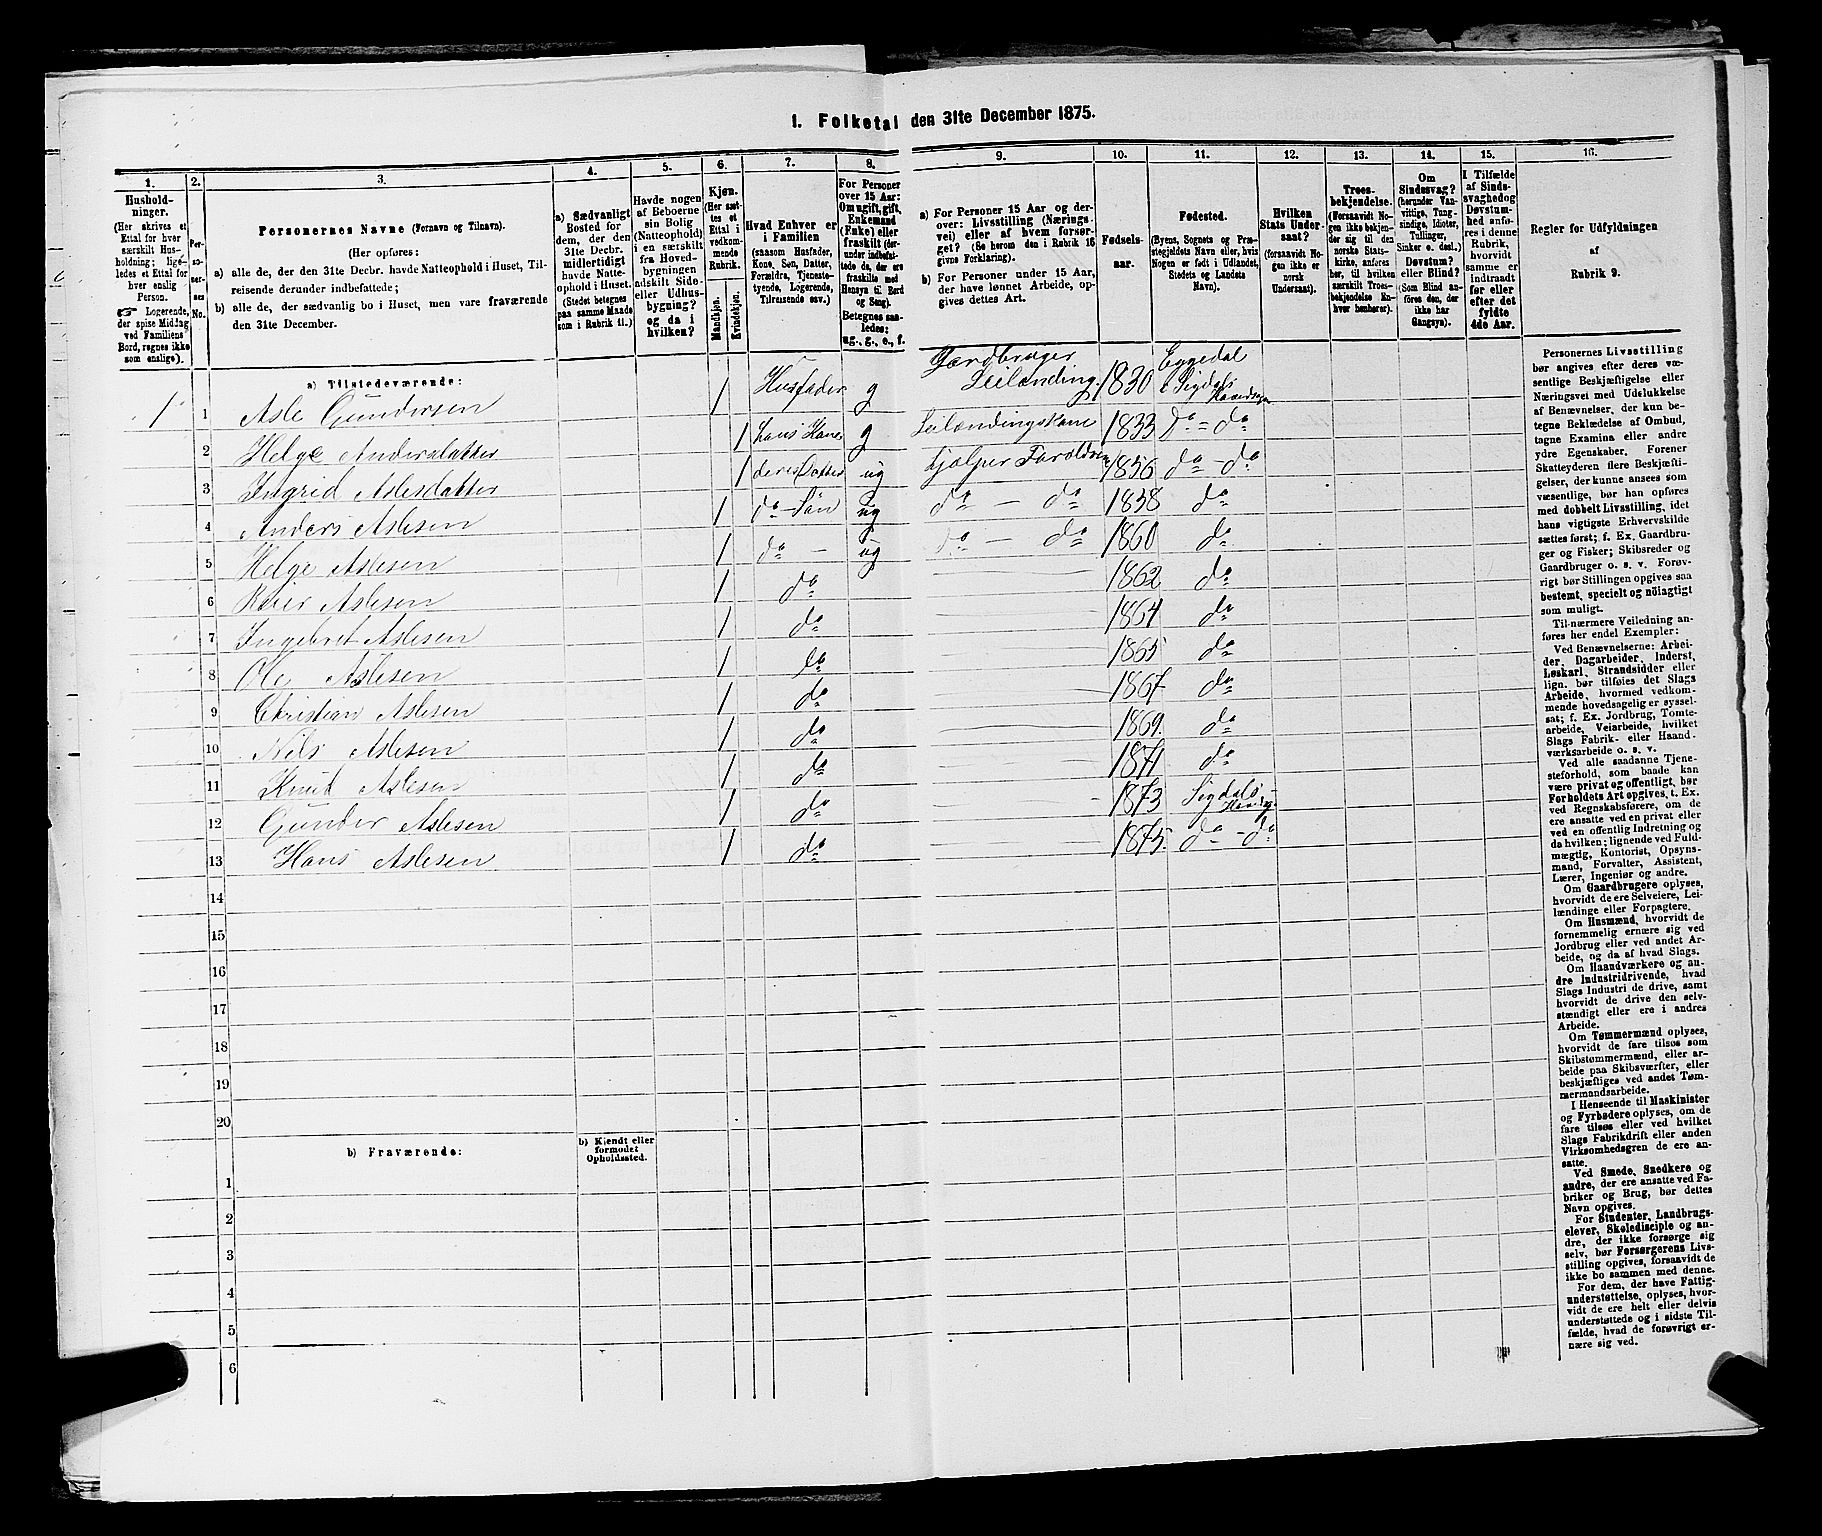 1. Folketal den 31te December 1875.
1.
2.
3.
4.
5.
6.
7.
8.
9.
10.
11.
12.
13.
14.
15.
16.
Hushold-
ninger.
(Her skrives et
Ettal for hver
særskilt Hus-
holdning; lige-
ledes et Ettal for
hver enslig
Person.
☞ Logerende,
der spise Middag
ved Familiens
Bord, regnes ikke
som enslige).
Per-
so-
ner-
nes
No.
Personernes Navne (Fornavn og Tilnavn).
(Her opføres:
a) alle de, der den 31te Decbr. havde Natteophold i Huset, Til-
reisende derunder indbefattede;
b) alle de, der sædvanlig bo i Huset, men vare fraværende
den 31te December.
a) Sædvanligt
Bosted for
dem, der den
31te Decbr.
midlertidigt
havde Natte-
ophold i Huset.
(Stedet betegnes
paa samme Maade
som i Rubrik 11.)
Havde nogen
af Beboerne
sin Bolig
(Natteophold)
i en særskilt
fra Hoved-
bygningen
adskilt Side-
eller Udhus-
bygning?
og da i
hvilken?
Kjøn.
(Her sæt-
tes et
Ettal i
vedkom-
mende
Rubrik.
Mandkjøn.
Kvindekjøn.
Hvad Enhver er
i Familien
(saasom Husfader,
Kone, Søn, Datter,
Forældre, Tjeneste-
tyende, Logerende,
Tilreisende osv.)
For Personer
over 15 Aar:
Om ugift, gift,
Enkemand
(Enke) eller
fraskilt (der-
under indbefat-
tede de, der ere
fraskilte med
Hensyn til Bord
og Seng).
Betegnes saa-
ledes:
ug., g., e., f.
a) For Personer 15 Aar og der-
over: Livsstilling (Nærings-
vei) eller af hvem forsør-
get? (Se herom den i Rubrik 16
givne Forklaring).
b) For Personer under 15 Aar,
der have lønnet Arbeide, op-
gives dettes Art.
Fødsels-
aar.
Fødested.
(Byens, Sognets og Præ-
stegjeldets Navn eller, hvis
Nogen er født i Udlandet,
Stedets og Landets
Navn).
Hvilken
Stats Under-
saat?
(forsaavidt No-
gen ikke er
norsk
Undersaat).
Troes-
bekjendelse.
(Forsaavidt No-
gen ikke bekjen-
der sig til den
norske Stats-
kirke, anføres
her, til hvilken
særskilt Troes-
bekjendelse En-
hver henhører).
Om
Sindssvag?
(herunder Van-
vittige, Tung-
sindige, Idioter,
Tullinger,
Sinker o. desl.)
Døvstum?
eller Blind?
(Som Blind an-
føres den, der
ikke har
Gangsyn).
I Tilfælde
af Sinds-
svaghed og
Døvstum-
hed anfø-
res i denne
Rubrik,
hvorvidt
samme er
indtraadt
før eller
efter det
fyldte
4de Aar.
Regler for Udfyldningen
af
Rubrik 9.
a) Tilstedeværende:
1 1 Asle Gundersen 1 Husfader g Gardbruger Leilænding 1830 Eggedal i Sigdals Hovedsogn
2 Helge Andersdatter 1 hans Kone g Leilændingskone 1833 do = do
3 Ingrid Aslesdatter 1 deres Datter ug hjælper Foreldrene 1856 do - do
4 Anders Aslesen 1 do - Søn ug do - do 1858 do
5 Helge Aslesen 1 do - ug do - do 1860 do
6 Aslesen 1 do 1862 do
7 Ingebret Aslesen 1 do 1864 do
8 Ole Aslesen 1 do 1865 do
9 Christian Aslesen 1 do 1867 do
10 Nils Aslesen 1 do 1869 do
11 Knud Aslesen 1 do 1871 do
12 Gunder Aslesen 1 do 1873 Sigdals Hovedsogn
13 Hans Aslesen 1 do 1875 do - do
14
15
16
17
18
19
20
b) Fraværende:
b) Kjendt eller
formodet
Opholdssted.
1
2
3
4
5
6
Personernes Livsstilling
bør angives efter deres væ-
sentlige Beskjæftigelse eller
Næringsvei med Udelukkelse
af Benævnelser, der kun be-
tegne Beklædelse af Ombud,
tagne Examina eller andre
ydre Egenskaber. Forener
Skatteyderen flere Beskjæfti-
gelser, der kunne ansees som
væsentlige, bør han opføres
med dobbelt Livsstilling, idet
hans vigtigste Erhvervskilde
sættes først; f. Ex. Gaardbru-
ger og Fisker; Skibsreder og
Gaardbruger o. s. v. Forøv-
rigt bør Stillingen opgives saa
bestemt, specielt og nöiagtigt
som muligt.
Til nærmere Veiledning an-
føres her endel Exempler:
Ved Benævnelserne: Arbei-
der, Dagarbeider, Inderst,
Løskarl, Strandsidder eller
lign. bør tilføies det Slags
Arbeide, hvormed vedkom-
mende hovedsagelig er syssel-
sat; f. Ex. Jordbrug, Tomte-
arbeide, Veiarbeide, hvilket
Slags Fabrik- eller Haand-
værksarbeide o. s. v.
Ved alle saadanne Tjene-
steforhold, som baade kan
være privat og offentligt, bør
Forholdets Art opgives, t. Ex.
ved Regnskabsførere, om de
ere ansatte ved en privat eller
ved en offentlig Indretning og
da hvilken; lignende ved Fuld-
mægtig, Kontorist, Opsyns-
mand, Forvalter, Assistent,
Lærer, Ingeniør og andre.
Om Gaardbrugere oplyses,
hvorvidt de ere Selveiere, Lei-
lændinge eller Forpagtere.
Om Husmænd, hvorvidt de
fornemmelig ernære sig ved
Jordbrug eller ved andet Ar-
beide, og da af hvad Slags.
Om Haandværkere og an-
dre Industridrivende, hvad
Slags Industri de drive, samt
hvorvidt de drive den selv-
stændigt eller ere i andres
Arbeide.
Om Tømmermænd oplyses,
hvorvidt de fare tilsøs som
Skibstømmermænd, eller ar-
beide paa Skibsværfter, eller
beskjæftiges ved andet Tøm-
mermandsarbeide.
I Henseende til Maskinister
og Fyrbødere oplyses, om de
fare tilsøs eller ved hvilket
Slags Fabrikdrift eller anden
Virksomhedsgren de ere an-
satte.
Ved Smede, Snedkere og
andre, der ere ansatte ved Fa-
briker og Brug, bør dettes
Navn opgives.
For Studenter, Landbrugs-
elever, Skoledisciple og an-
dre, der ikke forsørge sig
selv, bør Forsørgerens Livs-
stilling opgives, forsaavidt de
ikke bo sammen med denne.
For dem, der have Fattig-
understøttelse, oplyses, hvor-
vidt de ere helt eller delvis
understøttede og i sidste Til-
fælde, hvad de forøvrigt er-
nære sig ved.